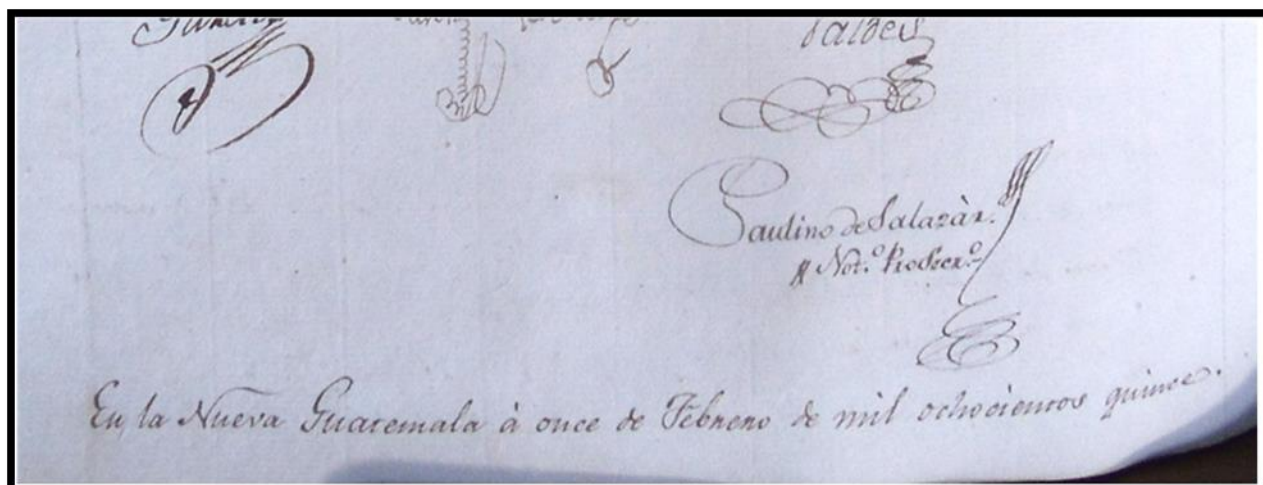 Valdes
Paulino de Salazàr.
Not.º Prosecr.º
En la Nueva Guatemala à once de Febrero de mil ochocientos quince.